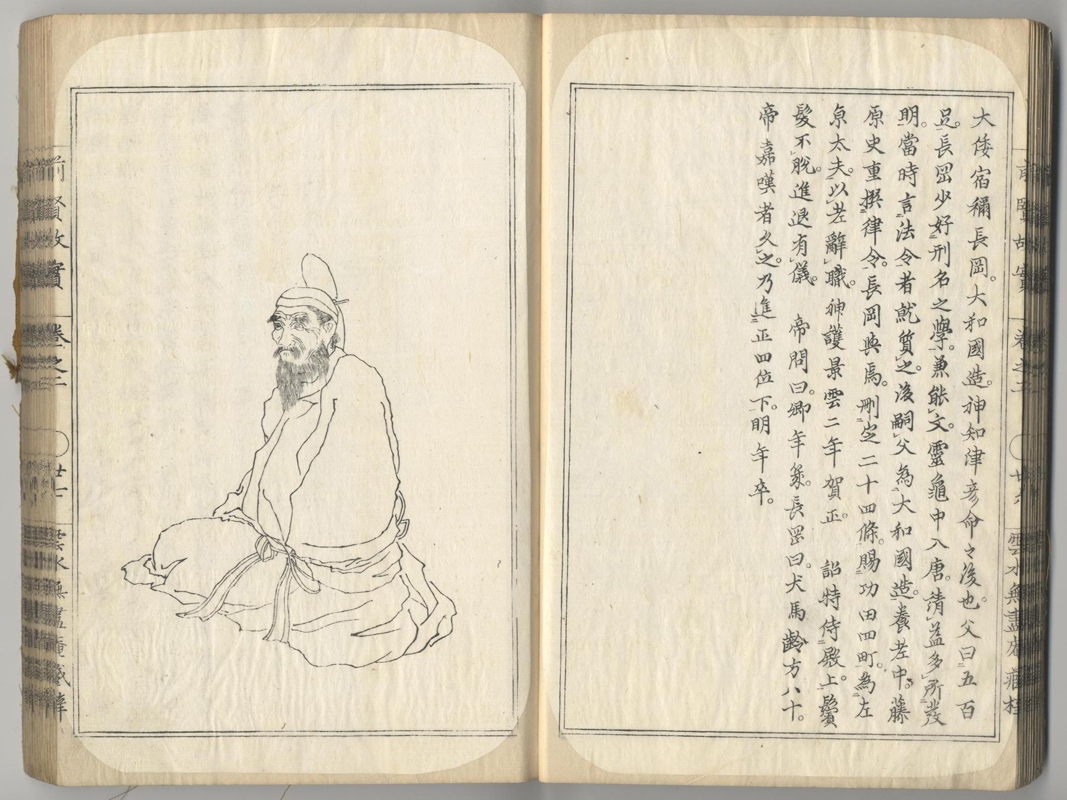 大倭宿禰長岡。大和國造。神知津彦命之後也。父曰五百
足。長岡少好刑名之學。兼能文。靈龜中入唐。請益多所發
明。當時言法令者就質之。後嗣父為大和國造。養老中。藤
原史重撰律令。長岡與焉。刪定二十四條。賜功田四町。為左
京大夫。以老辭職。神護景雲二年賀正。 詔特侍殿上。鬢
髮不脫。進退有儀。 帝問曰。卿年幾。長岡曰。犬馬齡方八十。
帝嘉嘆者久之。乃進正四位下。明年卒。
前賢故實 卷之二 廿七